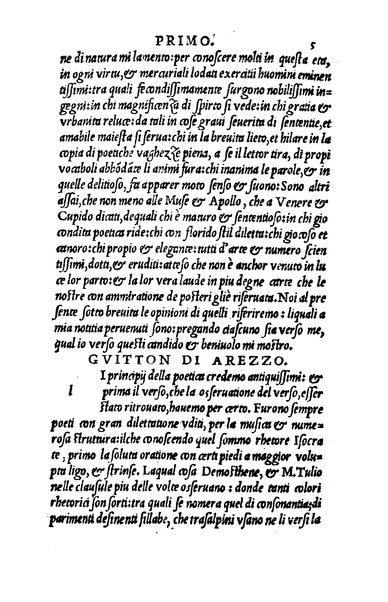 PRIMO. 5
ne di natura mi lamento: per conoscere molti in questa eta,
in ogni virtu, & mercuriali lodati exercitii huomini eminen
tissimi: tra quali fecondissimamente surgono nobilissimi in-
gegni: in chi magnificenza di spirto si vede: in chi gratia &
vrbanita reluce: da tali in cose graui seuerita di sententie, et
amabile maiesta si serua: chi in la breuita lieto, et hilare in la
copia di poetiche vaghezze piena, a se il lettor tira, di propi
vocaboli abbõdãte li animi fura: chi inanima le parole, & in
quelle delitioso, fa apparer moto senso & suono: Sono altri
assai, che non meno alle Muse & Apollo, che a Venere &
Cupido dicati, dequali chi è maturo & sententioso: in chi gio
condita poetica ride: chi con florido stil diletta: chi giocoso et
canoro: chi propio & elegante: tutti d'arte & numero scien
tissimi, dotti, & eruditi: atteso che non è anchor venuto in lu
ce lor parto: & la lor vera laude in piu degne carte che le
nostre con ammiratione de posteri gliè riseruata. Noi al pre
sente sotto breuita le opinioni di quelli riferiremo: liquali a
mia notitia peruenuti sono: pregando ciascuno sia verso me,
qual io verso questi candido & beniuolo mi mostro.
GVITTON DI AREZZO.
l I principij della poetica credemo antiquissimi: &
prima il verso, che la osseruatione del verso, esser
stato ritrouato, hauemo per certo. Furono sempre
poeti con gran dilettatione vditi, per la musica & nume-
rosa struttura: ilche conoscendo quel sommo rhetore Isocra
te, primo la soluta oration con certi piedi a maggior volu-
pta ligo, & strinse. Laqual cosa Demosthene, & M. Tulio
nelle clausule piu delle volte osseruano: donde tanti colori
rhetorici son sorti: tra quali se nomera quel di consonantia; di
parimenti desinenti sillabe, che trasalpini vsano ne li versi la